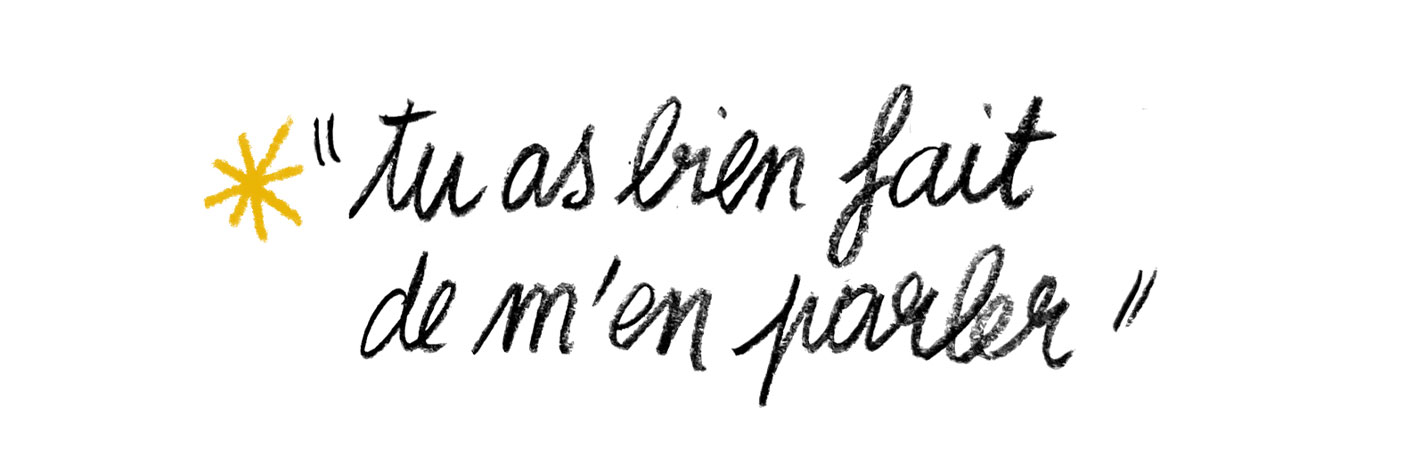 "tu as bien fait
de m'en parler"